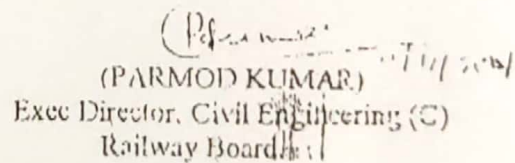 (PARMOD KUMAR)
Exec Director, Civil Engineering (C)
Railway Board